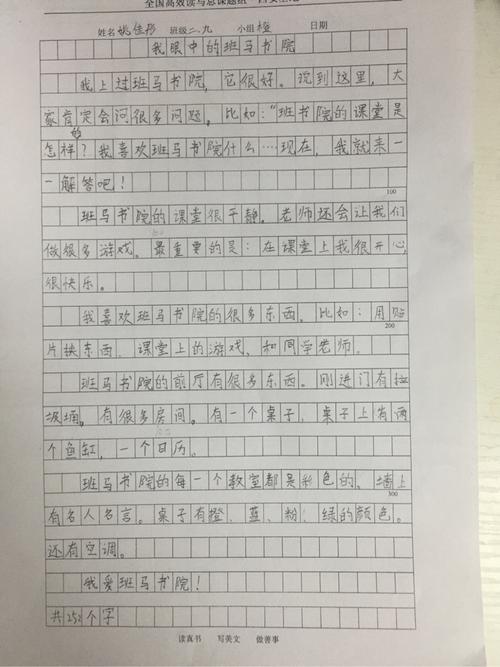 全国高效读与思课题组
姓名 姚佳彤 班级二、九 小组 橙 日期
我眼中的班马书院
我上过班马书院，它很好。说到这里，大
家肯定会问很多问题。比如：“班书院的课堂是
怎样的？我喜欢班马书院什么…现在，我就来一
一解答吧！
100
班马书院的课堂很干静。老师还会让我们
做很多游戏。最重要的是：在课堂上我很开心，
很快乐。
我喜欢班马书院的很多东西。比如：用贴
200
片换东西、课堂上的游戏、和同学老师。
班马书院的前厅有很多东西。刚进门有垃
圾桶。有很多房间。有一个桌子，桌子上有两
个鱼缸，一个日历。
班马书院的每一个教室都是彩色的、墙上
300
有名人名言。桌子有橙、蓝、粉、绿的颜色。
还有空调。
我爱班马书院！
共252个字
读真书 写美文 做善事